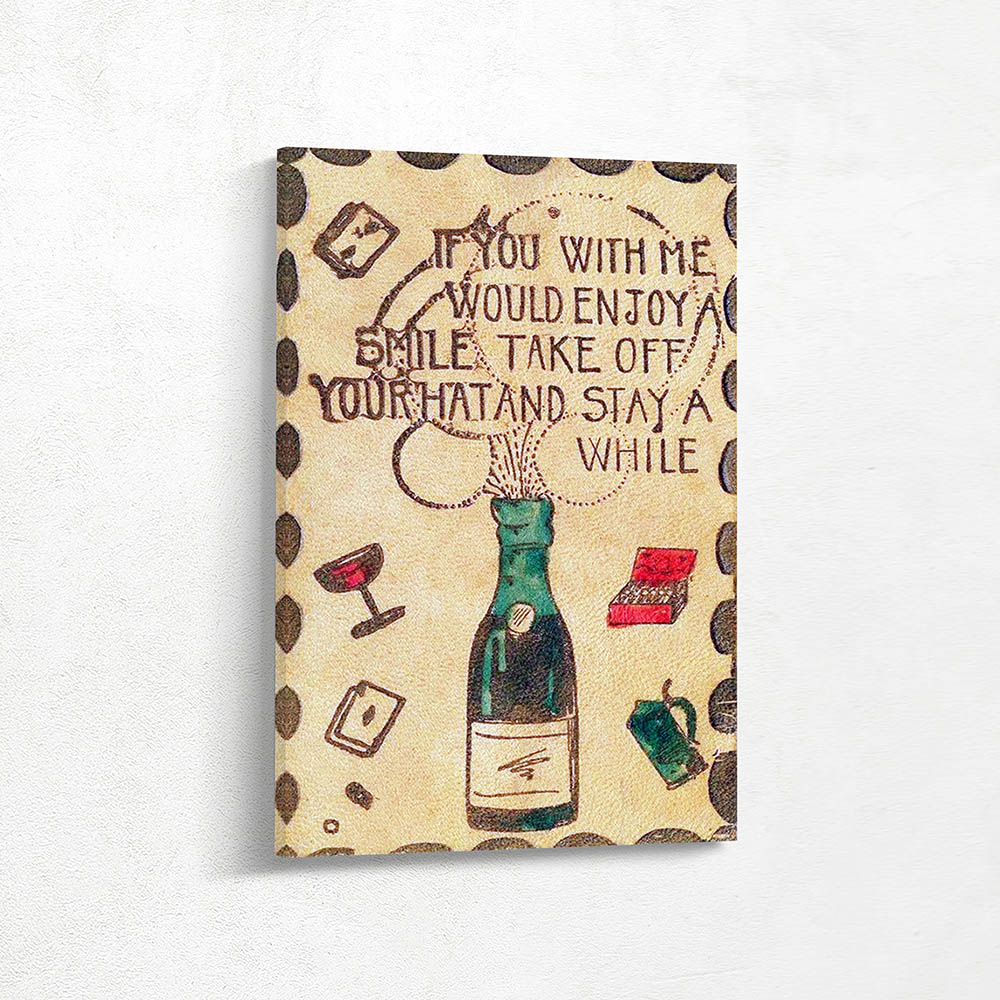 IF YOU WITH ME
WOULD ENJOY A
SMILE TAKE OFF
YOUR HAT AND STAY A
WHILE